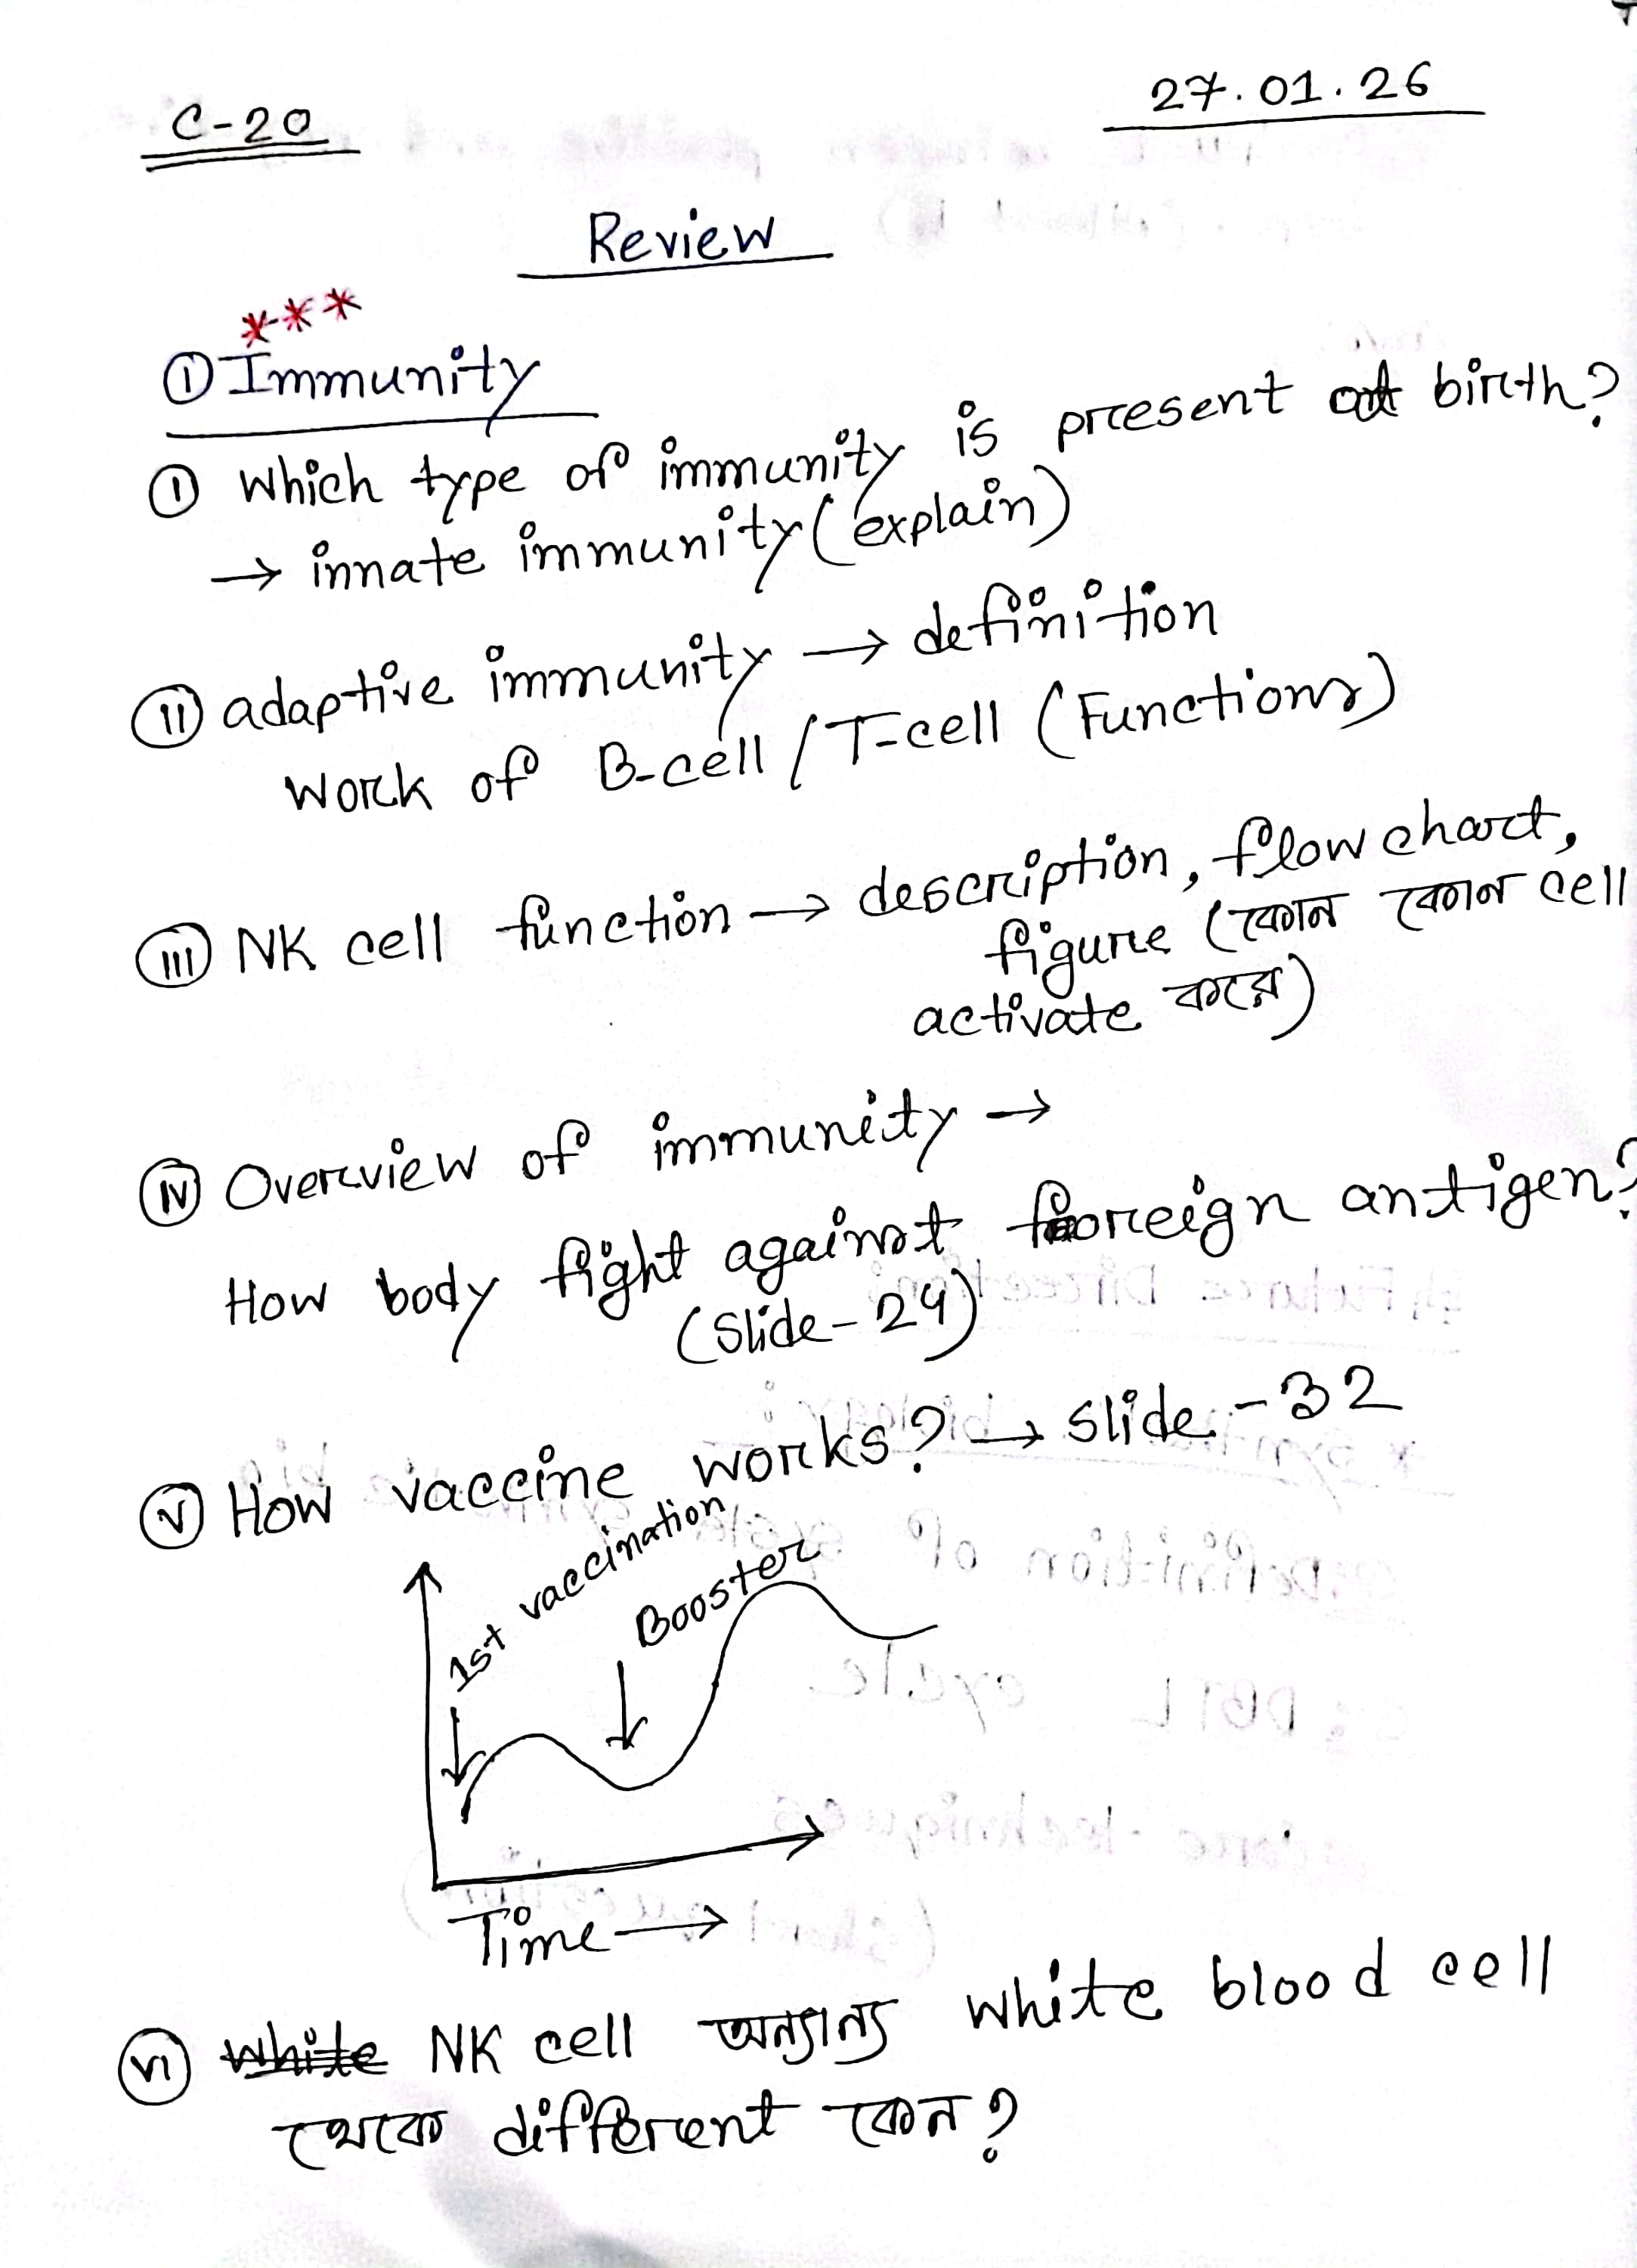 C-20
27.01.26
Review
***
① Immunity
① Which type of immunity is present at birth?
→ innate immunity (explain)
ⅱ adaptive immunity → definition
work of B-cell / T-cell (Functions)
ⅲ NK cell function → description, flow chart,
figure (কোন কোন cell
activate করে)
ⅳ Overview of immunity →
How body fight against foreign antigen?
(Slide-24)
ⅴ How vaccine works? → slide-32
1st vaccination
Booster
Time →
ⅵ NK cell অন্যান্য white blood cell
থেকে different কেন?